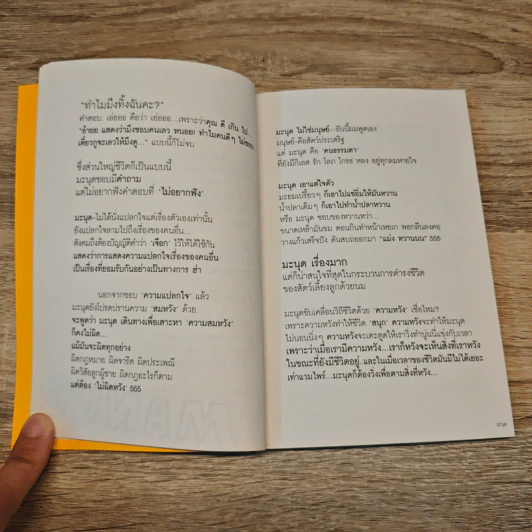 "ทำไมมึงทิ้งฉันคะ?"
คำตอบ: เย่อออ คือว่า เย่อออ...เพราะว่าคุณ ดี เกิน ไป...
"อ๋ออย แสดงว่ามึงชอบคนเลว หนอย! ทำไมคนดีๆ ไม่ชอบ
เดี๋ยวกูจะเลวให้มึงดู..." แบบนี้ก็ไม่จบ
ซึ่งส่วนใหญ่ชีวิตก็เป็นแบบนี้
มะนุดชอบมีคำถาม
แต่ไม่อยากฟังคำตอบที่ 'ไม่อยากฟัง'
มะนุด-ไม่ได้นั่งแปลกใจแต่เรื่องตัวเองเท่านั้น
ยังแปลกใจลามไปถึงเรื่องของคนอื่น...
สังคมถึงต้องบัญญัติคำว่า 'เจือก' ไว้ให้ได้ใช้กัน
แสดงว่าการแสดงความแปลกใจเรื่องของคนอื่น
เป็นเรื่องที่ยอมรับกันอย่างเป็นทางการ ฮ่า
นอกจากชอบ 'ความแปลกใจ' แล้ว
มะนุดยังโปรดปรานความ 'สมหวัง' ด้วย
จะพูดว่า มะนุด เดินทางเพื่อเสาะหา 'ความสมหวัง'
ก็คงไม่ผิด...
แม้มันจะผิดทุกอย่าง
ผิดกฎหมาย ผิดจารีต ผิดประเพณี
ผิดวิสัยลูกผู้ชาย ผิดกฎอะไรก็ตาม
แต่ต้อง 'ไม่ผิดหวัง' 555
มะนุด ไม่ใช่มนุษย์–อันนี้ผมพูดเอง
มนุษย์-คือสัตว์ประเสริฐ
แต่ มะนุด คือ 'คนธรรมดา'
ที่ยังมีกิเลส รัก โลภ โกรธ หลง อยู่ทุกลมหายใจ
มะนุด เอาแต่ใจตัว
มะยมเปรี้ยวๆ ก็เอาไปแช่อิ่มให้มันหวาน
น้ำปลาเค็มๆ ก็เอาไปทำน้ำปลาหวาน
หรือ มะนุด ชอบของหวานกว่า...
ขนาดเหล้ามันขม ตอนกินทำหน้าเหยเก พอกลืนลงคอ
วางแก้วเสร็จปัง ดันสบถออกมา 'แม่ง หวานนน' 555
มะนุด เรื่องมาก
แต่ก็น่าสนุกใจที่สุดในกระบวนการดำรงชีวิต
ของสัตว์เลี้ยงลูกด้วยนม
มะนุดขับเคลื่อนวิถีชีวิตด้วย 'ความหวัง' เชื่อไหม?
เพราะความหวังทำให้ชีวิต 'สนุก' ความหวังจะทำให้มะนุด
ไม่นอนนิ่งๆ ความหวังจะเตะตูดให้เราวิ่งทำนู่นนี่แข่งกับเวลา
เพราะว่าเมื่อเรามีความหวัง...เราก็หวังจะเห็นสิ่งที่เราหวัง
ในขณะที่ยังมีชีวิตอยู่..และในเมื่อเวลาของชีวิตมันมีไม่ได้เยอะ
เท่าแวมไพร์...มะนุดก็ต้องวิ่งเพื่อตามสิ่งที่หวัง...
มะนุด